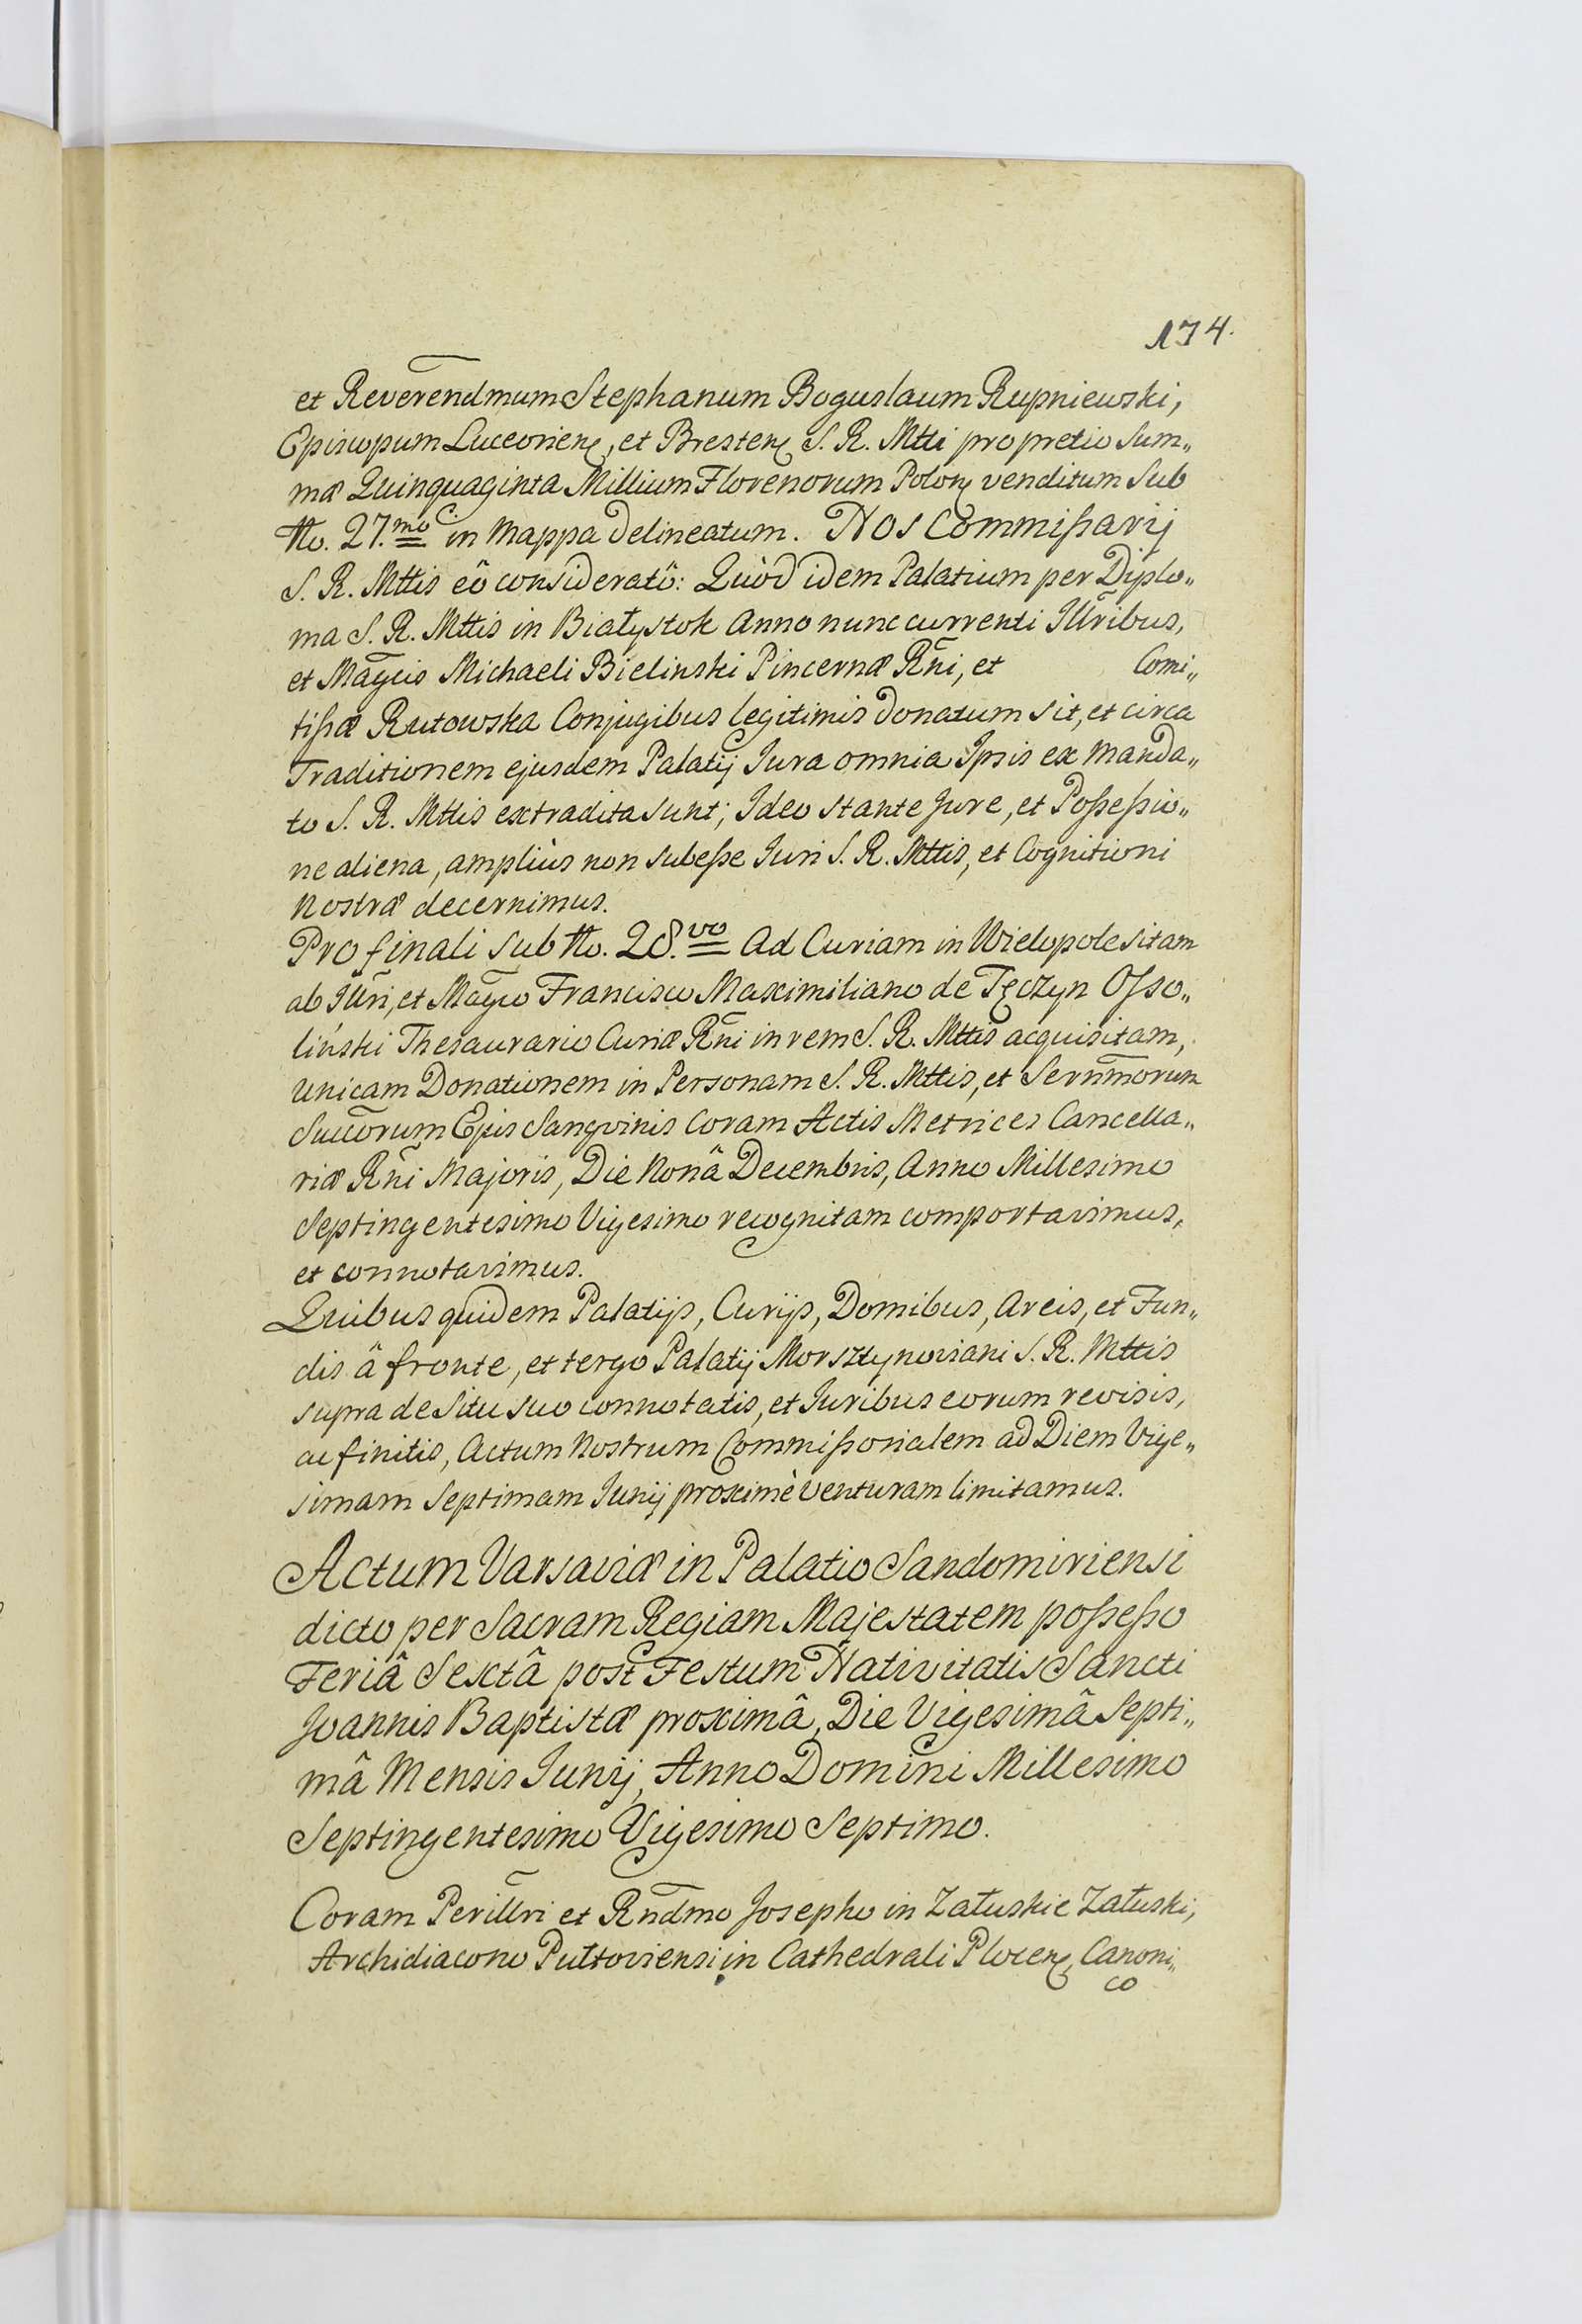 174.
et Reverendmum Stephanum Boguslaum Rupniewski,
Episcopum Luceorien, et Bresten S. R. Mtti pro pretio Sum„
mæ Quinquaginta Millium Florenorum Polon venditum Sub
No. 27.mo in Mappa delineatum. Nos Commißarij
S. R. Mttis eô consideratô: Quòd idem Palatium per Diplo„
ma S. R. Mttis in Białystok Anno nunc currenti Illribus,
et Magcis Michaeli Bielinski Pincernæ Rni, et Comi„
tißæ Rutowska Conjugibus legitimis donatum sit, et circa
Traditionem ejusdem Palatij Jura omnia Ipsis ex Manda„
to S. R. Mttis extradita sunt; Ideo stante Jure, et Poßeßio„
ne aliena, ampliùs non subeße Juri S. R. Mttis, et Cognitioni
Nostræ decernimus.
Pro finali sub No. 28.vo Ad Curiam in Wielopole sitam
ab Illri, et Magco Francisco Maximiliano de Tęczyn Osso„
liński Thesaurario Curiæ Rni in rem S. R. Mttis acquisitam,
unicam Donationem in Personam S. R. Mttis, et Sernmorum
Succorum Ejus Sangvinis Coram Actis Metrices Cancella„
riæ Rni Majoris, Die Nonâ Decembris, Anno Millesimo
Septingentesimo Vigesimo recognitam comportavimus,
et connotavimus.
Quibus quidem Palatijs, Curijs, Domibus, Areis, et Fun„
dis â fronte, et tergo Palatij Morsztynoviani S. R. Mttis
supra de Situ suo connotatis, et Juribus eorum revisis,
ac finitis, Actum Nostrum Commißorialem ad Diem Vige„
simam Septimam Junij proximè venturam limitamus.
Actum Varsaviæ in Palatio Sandomiriensi
dicto per Sacram Regiam Majestatem poßeßo
Feriâ Sextâ post Festum Nativitatis Sancti
Joannis Baptistæ proximâ, Die Vigesimâ Septi„
mâ Mensis Junij, Anno Domini Millesimo
Septingentesimo Vigesimo Septimo.
Coram Perillri et Rndmo Josepho in Załuskie Załuski,
Archidiacono Pułtoviensi in Cathedrali Plocen, Canoni„
co